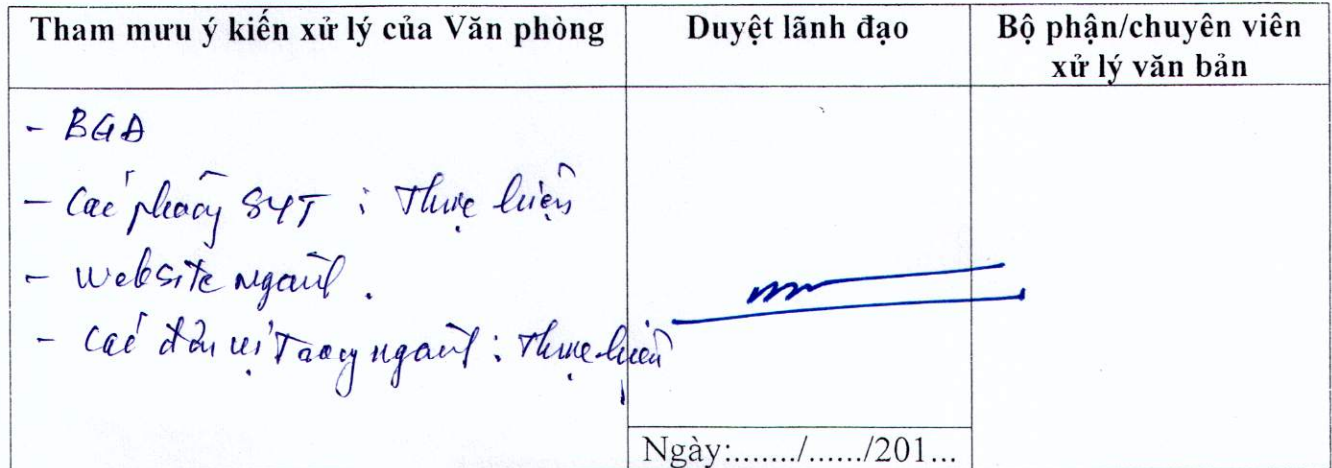 Tham mưu ý kiến xử lý của Văn phòng
Duyệt lãnh đạo
Bộ phận/chuyên viên
xử lý văn bản
- BGĐ
- Các phòng SYT : Thực hiện
- Website ngành.
- Các đơn vị trong ngành : Thực hiện
Ngày:......./....../201...